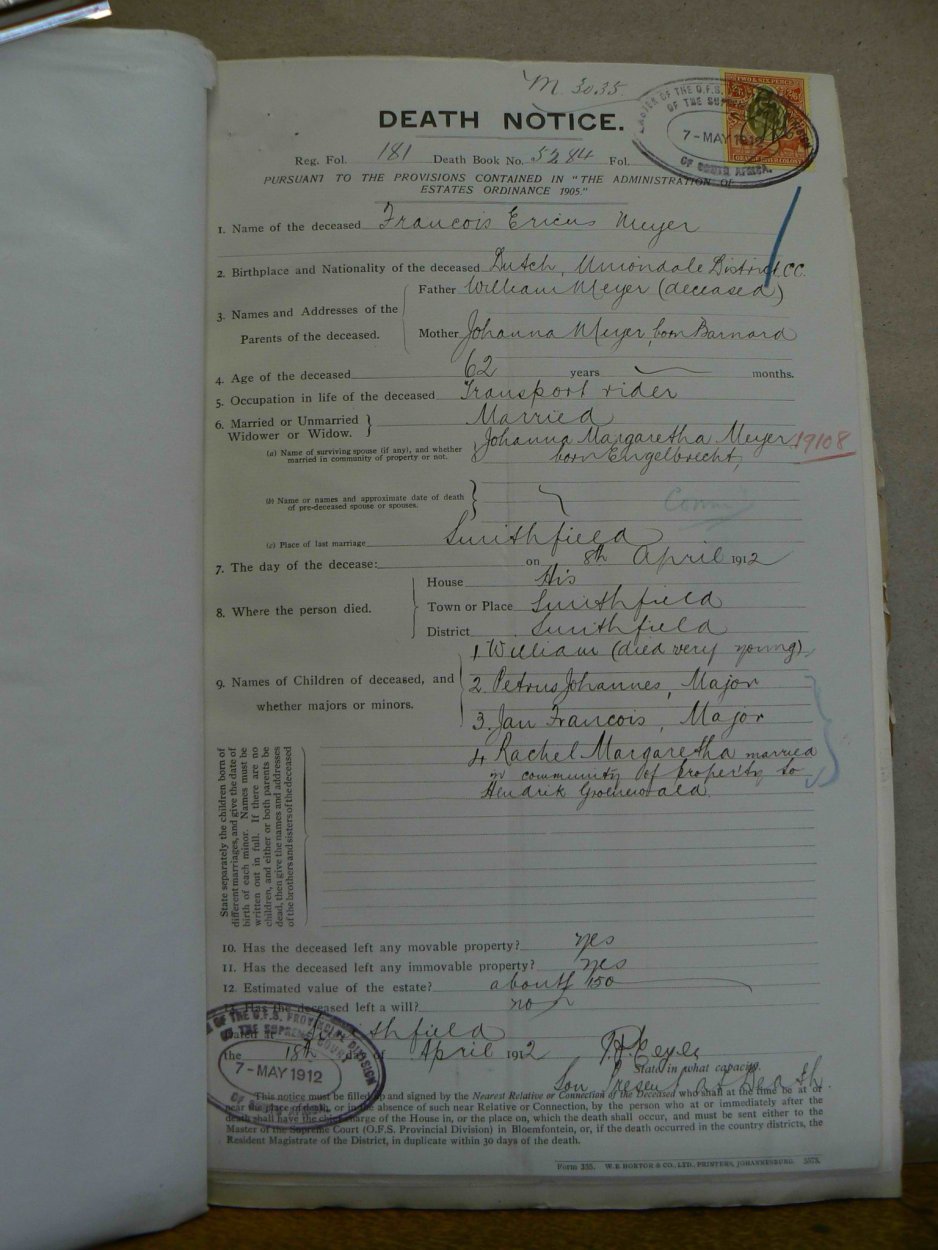 M. 3035
DEATH NOTICE.
Reg. Fol. 181 Death Book No. 5284 Fol.
PURSUANT TO THE PROVISIONS CONTAINED IN "THE ADMINISTRATION OF
ESTATES ORDINANCE 1905."
TWO & SIX PENCE
OF THE O.F.S.
OF THE SUPREME
7-MAY 1912
OF SOUTH AFRICA.
1. Name of the deceased Francois Ericus Meyer
2. Birthplace and Nationality of the deceased Dutch, Uniondale District C.C.
3. Names and Addresses of the Parents of the deceased.
Father William Meyer (deceased)
Mother Johanna Meyer, born Barnard
4. Age of the deceased 62 years months.
5. Occupation in life of the deceased Transport rider
6. Married or Unmarried Widower or Widow. Married
(a) Name of surviving spouse (if any), and whether married in community of property or not.
Johanna Margaretha Meyer 19108
born Engelbrecht,
(b) Name or names and approximate date of death of pre-deceased spouse or spouses.
(c) Place of last marriage Smithfield
7. The day of the decease: on 8th April 1912
8. Where the person died.
House His
Town or Place Smithfield
District Smithfield
9. Names of Children of deceased, and whether majors or minors.
1 William (died very young),
2. Petrus Johannes, Major
3. Jan Francois, Major
4 Rachel Margaretha married
in community of property to
Hendrik Groenewald.
State separately the children born of
different marriages, and give the date of
birth of each minor. Names must be
written out in full. If there are no
children, and either or both parents be
dead, then give the names and addresses
of the brothers and sisters of the deceased
10. Has the deceased left any movable property? yes
11. Has the deceased left any immovable property? yes
12. Estimated value of the estate? about £150
13. Has the deceased left a will? no
Dated at Smithfield
the 18th day of April 1912
State in what capacity.
Son Present at Death.
OF THE O.F.S. PROVINCIAL DIVISION
OF THE SUPREME COURT
7-MAY 1912
This notice must be filled up and signed by the Nearest Relative or Connection of the Deceased who shall at the time be at or
near the place of death, or in the absence of such near Relative or Connection, by the person who at or immediately after the
death shall have the chief charge of the House in, or the place on, which the death shall occur, and must be sent either to the
Master of the Supreme Court (O.F.S. Provincial Division) in Bloemfontein, or, if the death occurred in the country districts, the
Resident Magistrate of the District, in duplicate within 30 days of the death.
Form 355. W. E. HORTOR & CO., LTD., PRINTERS, JOHANNESBURG.